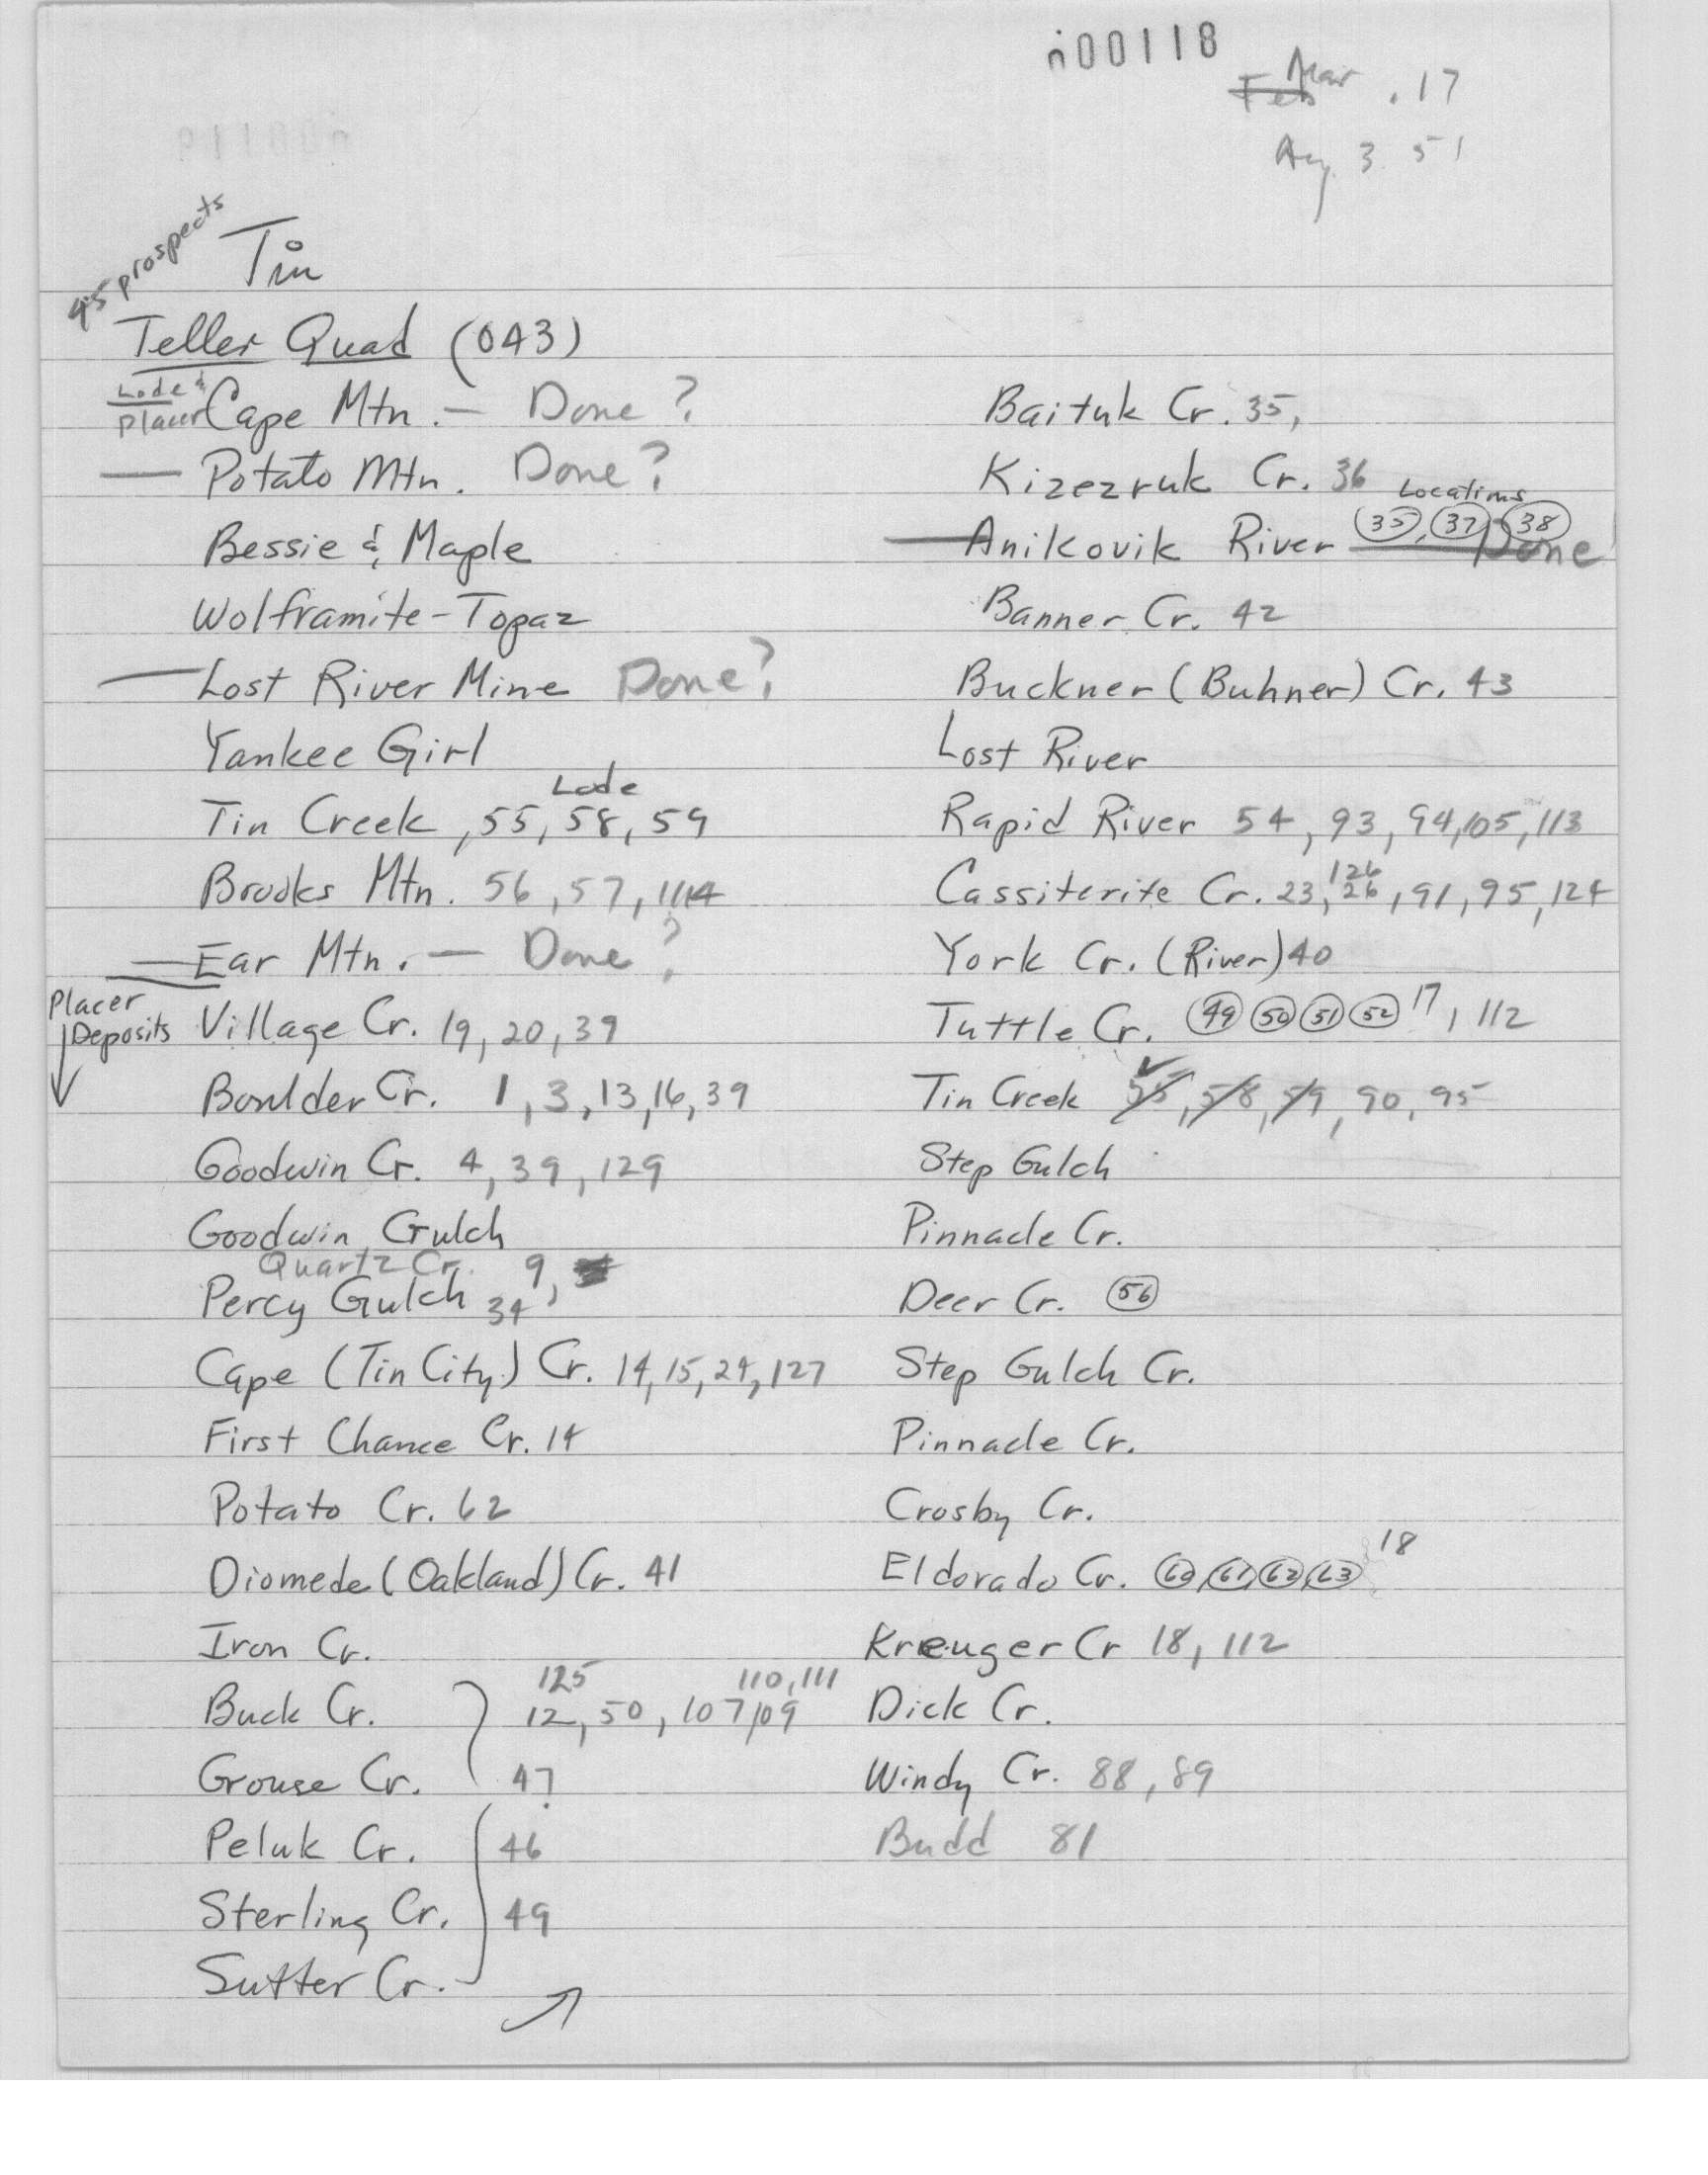 000118
Mar
Feb . 17
Aug 3 51
45 prospects
Tin
Teller Quad (043)
Lode &
Placer
Cape Mtn. — Done ?
— Potato Mtn. Done?
Bessie & Maple
Wolframite-Topaz
— Lost River Mine Done?
Yankee Girl
Lode
Tin Creek, 55, 58, 59
Brooks Mtn. 56, 57, 114
— Ear Mtn. — Done ?
Placer
Deposits
Village Cr. 19, 20, 39
Boulder Cr. 1, 3, 13, 16, 39
Goodwin Cr. 4, 39, 129
Goodwin Gulch
Quartz Cr. 9,
Percy Gulch 34
Cape (Tin City) Cr. 14, 15, 24, 127
First Chance Cr. 14
Potato Cr. 62
Diomede (Oakland) Cr. 41
Iron Cr.
125 110, 111
Buck Cr. 12, 50, 107, 109
Grouse Cr. 47
Peluk Cr. 46
Sterling Cr. 49
Sutter Cr.
Baituk Cr. 35,
Kizezruk Cr. 36
Locations
— Anikovik River 35, 37, 38 Done
Banner Cr. 42
Buckner (Buhner) Cr. 43
Lost River
Rapid River 54, 93, 94, 105, 113
126
Cassiterite Cr. 23, 26, 91, 95, 124
York Cr. (River) 40
Tuttle Cr. 49 50 51 52 17, 112
Tin Creek 55, 58, 59, 90, 95
Step Gulch
Pinnacle Cr.
Deer Cr. 56
Step Gulch Cr.
Pinnacle Cr.
Crosby Cr.
18
Eldorado Cr. 60, 61, 62, 63
Kreuger Cr 18, 112
Dick Cr.
Windy Cr. 88, 89
Budd 81